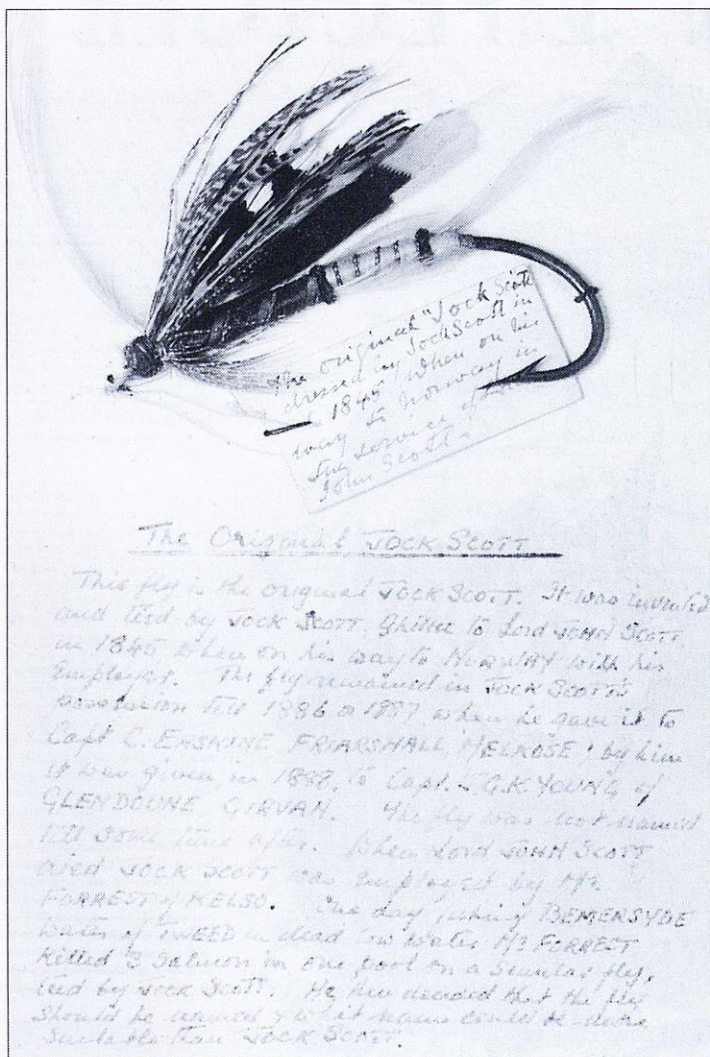 The original "Jock Scott
dressed by Jock Scott in
1845 when on his
way to Norway in
the service of
John Scott -
The Original JOCK SCOTT
This fly is the original JOCK SCOTT. It was invented
and tied by JOCK SCOTT, Ghillie to Lord JOHN SCOTT
in 1845 when on his way to NORWAY with his
Employer. The fly remained in JOCK SCOTT'S
possession till 1886 or 1887 when he gave it to
Capt C. ERSKINE FRIARSHALL, MELROSE; by him
it was given, in 1888, to Capt. G.K. YOUNG of
GLENDOUNE GIRVAN. The fly was not named
till some time after. When Lord JOHN SCOTT
died JOCK SCOTT was employed by Mr
FORREST of KELSO. One day, BEMERSYDE
Water of TWEED in dead low water Mr FORREST
killed 3 Salmon in one pool on a similar fly,
tied by JOCK SCOTT. He decided that the fly
should be named & what name could be more
suitable than JOCK SCOTT.